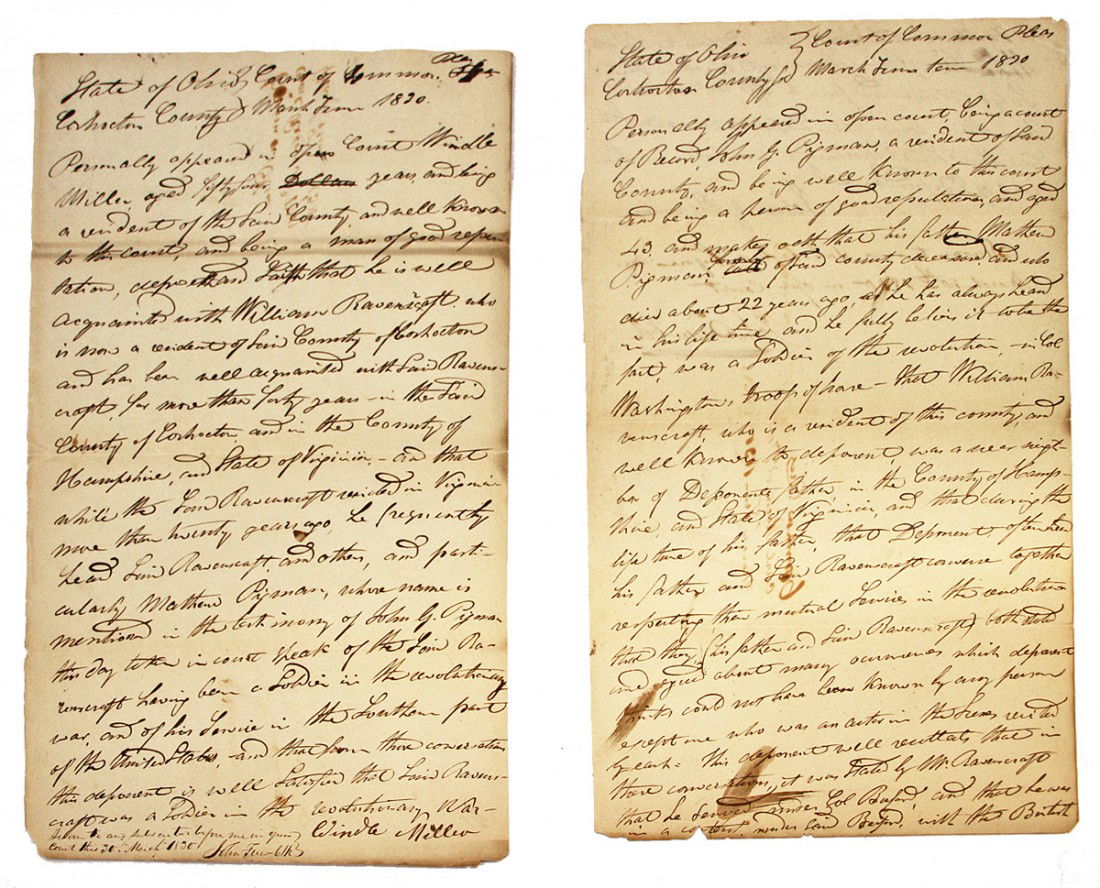 State of Ohio Court of Common Pleas
Coshocton County March Term 1830.
Personally appeared in open Court Windle
Miller, aged fifty four Dollars years, and being
a resident of the Said County, and well known
to this court, and being a man of good repu-
tation, deposeth and Saith that he is well
acquainted with William Ravenscraft who
is now a resident of Said County of Coshocton
and has been well acquainted with Said Ravens-
craft, for more than forty years – in the Said
County of Coshocton, and in the County of
Hampshire, and State of Virginia, – and that
while the Said Ravenscraft resided in Virginia
more than twenty years ago, he frequently
heard Said Ravenscraft, and others, and parti-
cularly Mathew Pigman, whose name is
mentioned in the testimony of John G. Pigman
this day taken in court speak of the Said Ra-
venscraft having been a Soldier in the revolutionary
war, and of his Service in the Southern part
of the United States, – and that from those conversations
this deponent is well Satisfied that Said Ravens-
craft was a Soldier in the revolutionary War –
Windle Miller
Sworn to and subscribed before me in open
Court this 30th March 1830
John Clk
State of Ohio Court of Common Pleas
Coshocton County March Term 1830
Personally appeared in open court, being a court
of Record, John G. Pigman, a resident of Said
County, and being well known to this court
and being a person of good reputation, and aged
43, and makes oath that his father Mathew
Pigman of Said county deceased and who
died about 22 years ago, as he has always heard
in his life time, and he fully believes it to be the
fact, was a Soldier of the revolution, – in Col
Washington's troop of horse – that William Ra-
venscraft, who is a resident of this county, and
well known to deponent, was a near neigh-
bor of Deponents father, in the County of Hamp-
shire, and State of Virginia, and that during the
life time of his father, that Deponent, often heard
his father and Said Ravenscraft converse together
respecting their mutual Services in the revolution
that they, (his father and Said Ravenscraft) both stated
and agreed about many occurrences which deponent
thinks could not have been known by any person
except one who was an actor in the Scenes recited
by each – this deponent well recollects that in
those conversations, it was Stated by Mr. Ravenscraft
that he Served under Col Buford, and that he was
in a contest, under Said Buford, with the British